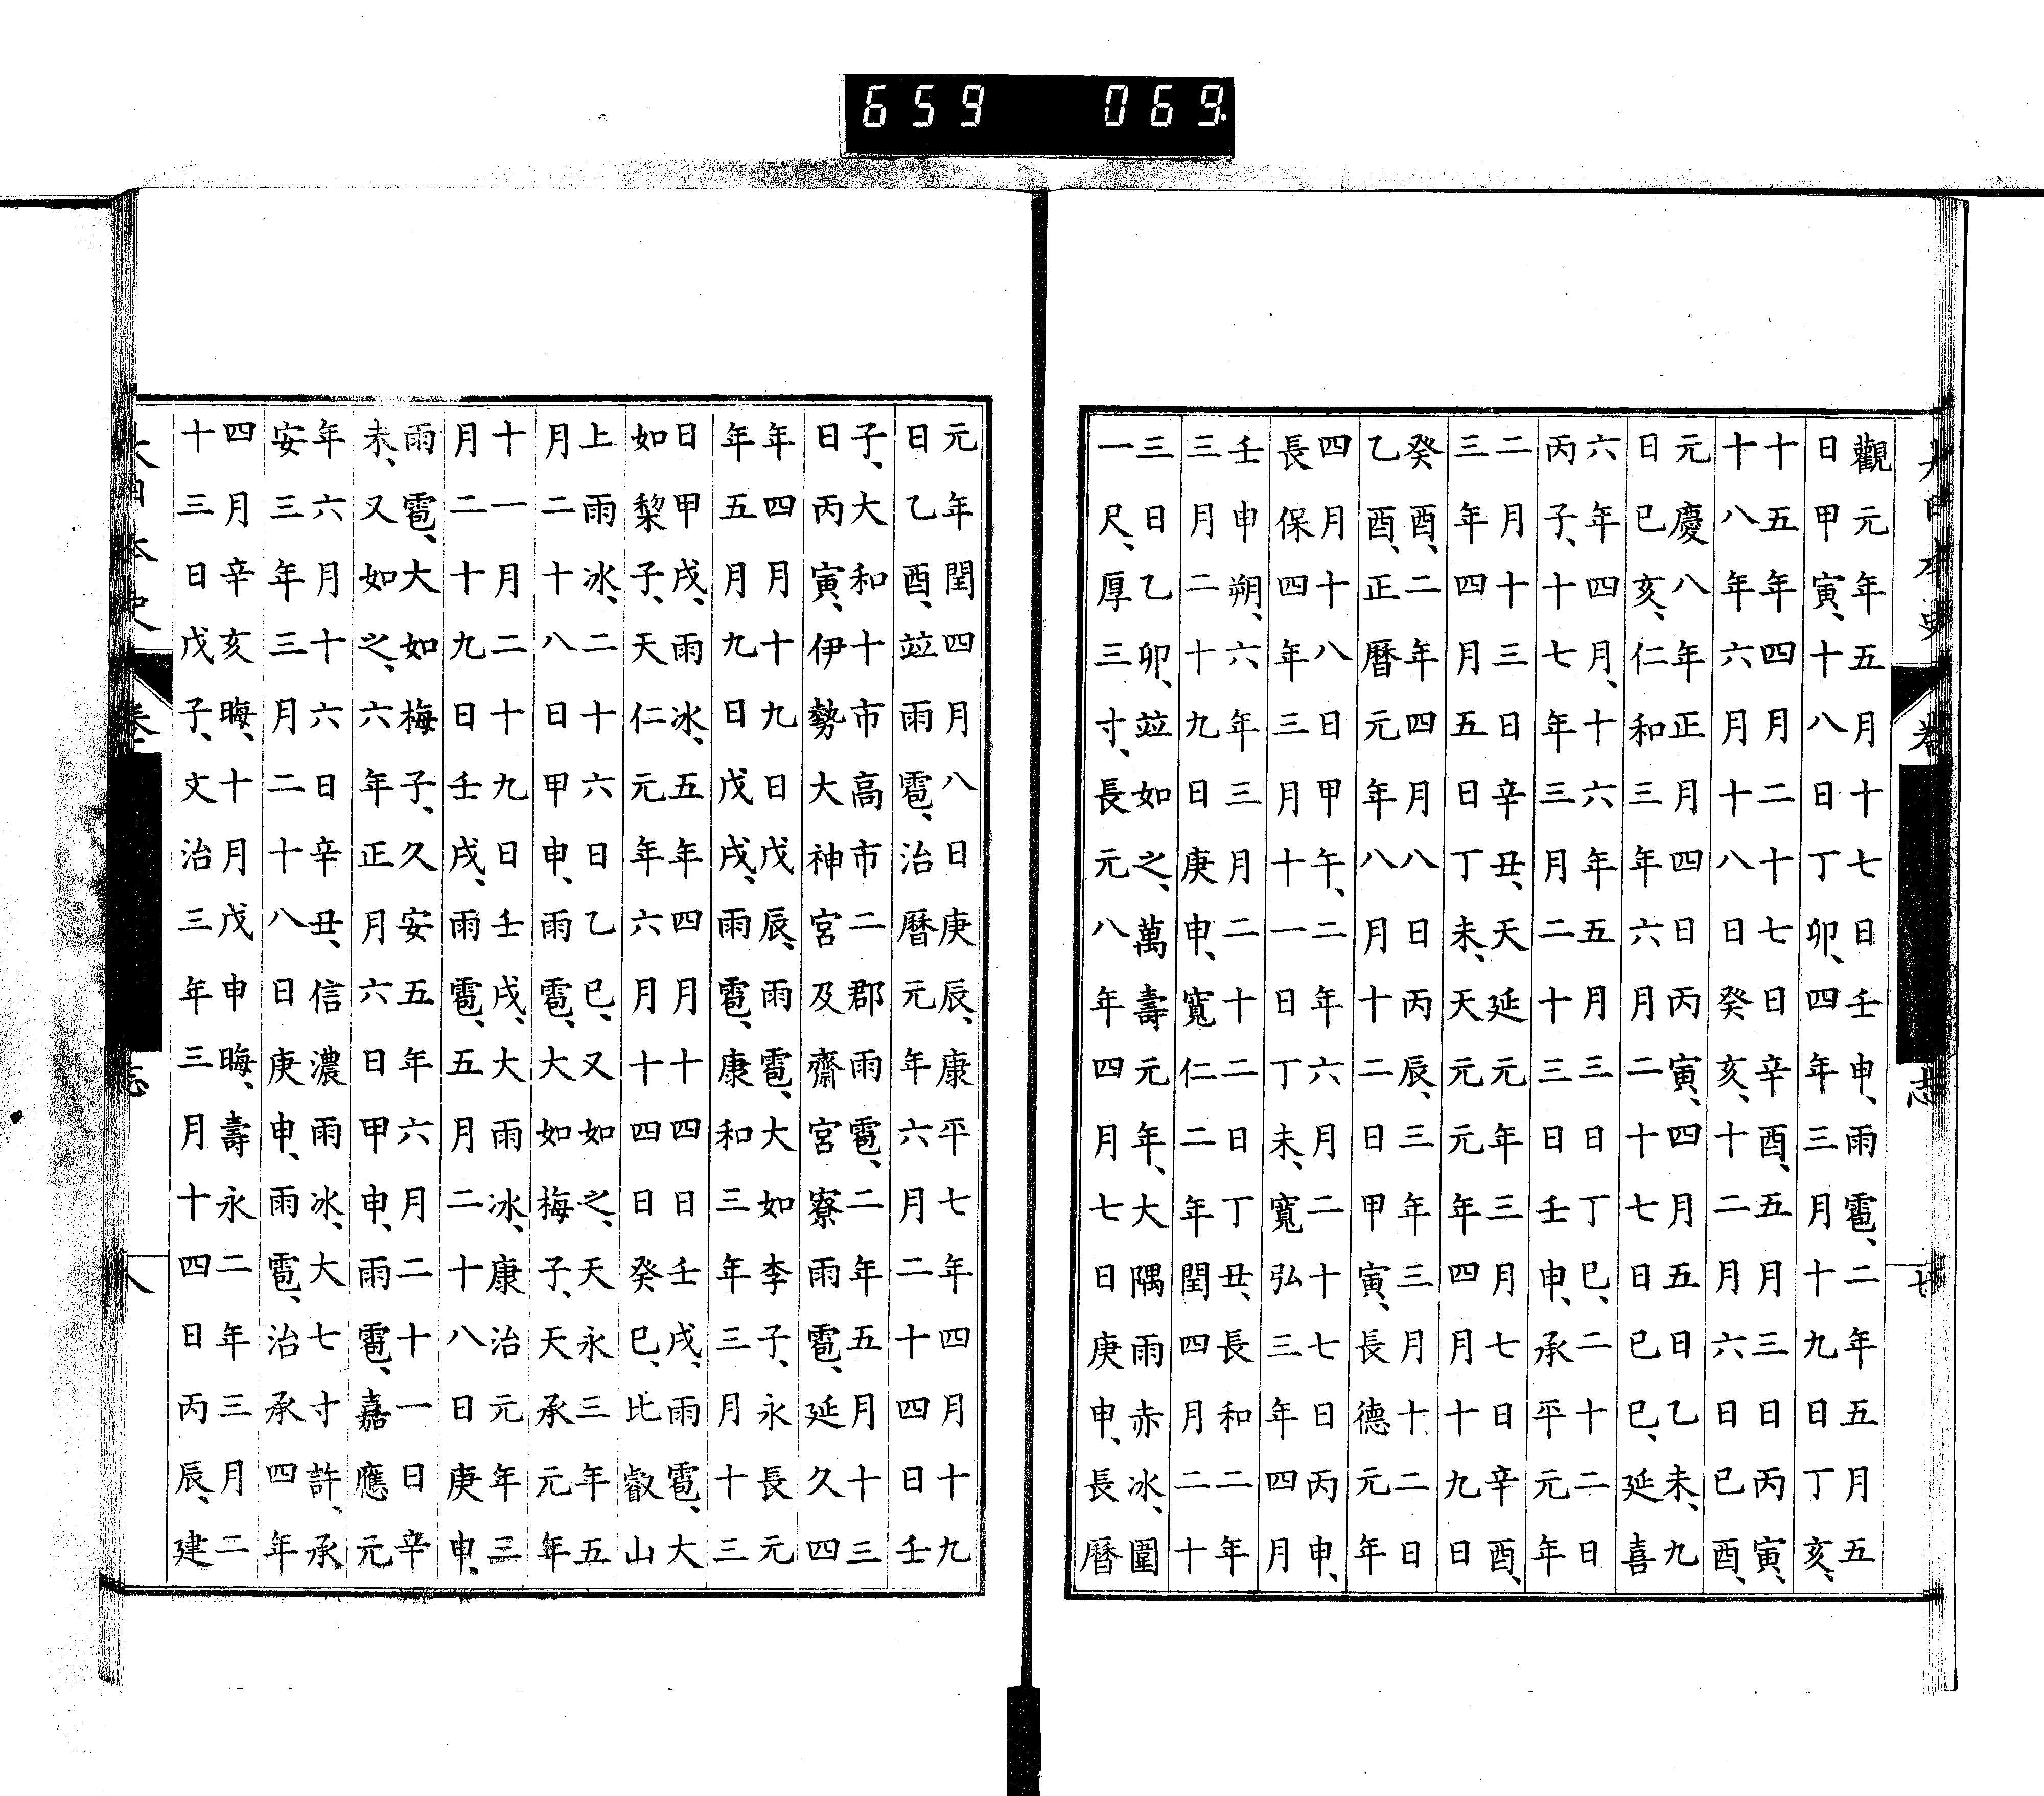 659 069.
大日本史 卷 志 七
觀元年五月十七日壬申、雨雹、二年五月五
日甲寅、十八日丁卯、四年三月十九日丁亥、
十五年四月二十七日辛酉、五月三日丙寅、
十八年六月十八日癸亥、十二月六日己酉、
元慶八年正月四日丙寅、四月五日乙未、九
日己亥、仁和三年六月二十七日己巳、延喜
六年四月、十六年五月三日丁巳、二十二日
丙子、十七年三月二十三日壬申、承平元年
二月十三日辛丑、天延元年三月七日辛酉、
三年四月五日丁未、天元元年四月十九日
癸酉、二年四月八日丙辰、三年三月十二日
乙酉、正曆元年八月十二日甲寅、長德元年
四月十八日甲午、二年六月二十七日丙申、
長保四年三月十一日丁未、寬弘三年四月
壬申朔、六年三月二十二日丁丑、長和二年
三月二十九日庚申、寬仁二年閏四月二十
三日乙卯、竝如之、萬壽元年、大隅雨赤冰、圍
一尺、厚三寸、長元八年四月七日庚申、長曆
元年閏四月八日庚辰、康平七年四月十九
日乙酉、竝雨雹、治曆元年六月二十四日壬
子、大和十市高市二郡雨雹、二年五月十三
日丙寅、伊勢大神宮及齋宮寮雨雹、延久四
年四月十九日戊辰、雨雹、大如李子、永長元
年五月九日戊戌、雨雹、康和三年三月十三
日甲戌、雨冰、五年四月十四日壬戌、雨雹、大
如黎子、天仁元年六月十四日癸巳、比叡山
上雨冰、二十六日乙巳、又如之、天永三年五
月二十八日甲申、雨雹、大如梅子、天承元年
十一月二十九日壬戌、大雨冰、康治元年三
月二十九日壬戌、雨雹、五月二十八日庚申、
雨雹、大如梅子、久安五年六月二十一日辛
未、又如之、六年正月六日甲申、雨雹、嘉應元
年六月十六日辛丑、信濃雨冰、大七寸許、承
安三年三月二十八日庚申、雨雹、治承四年
四月辛亥晦、十月戊申晦、壽永二年三月二
十三日戊子、文治三年三月十四日丙辰、建
大日本史 卷 志 八